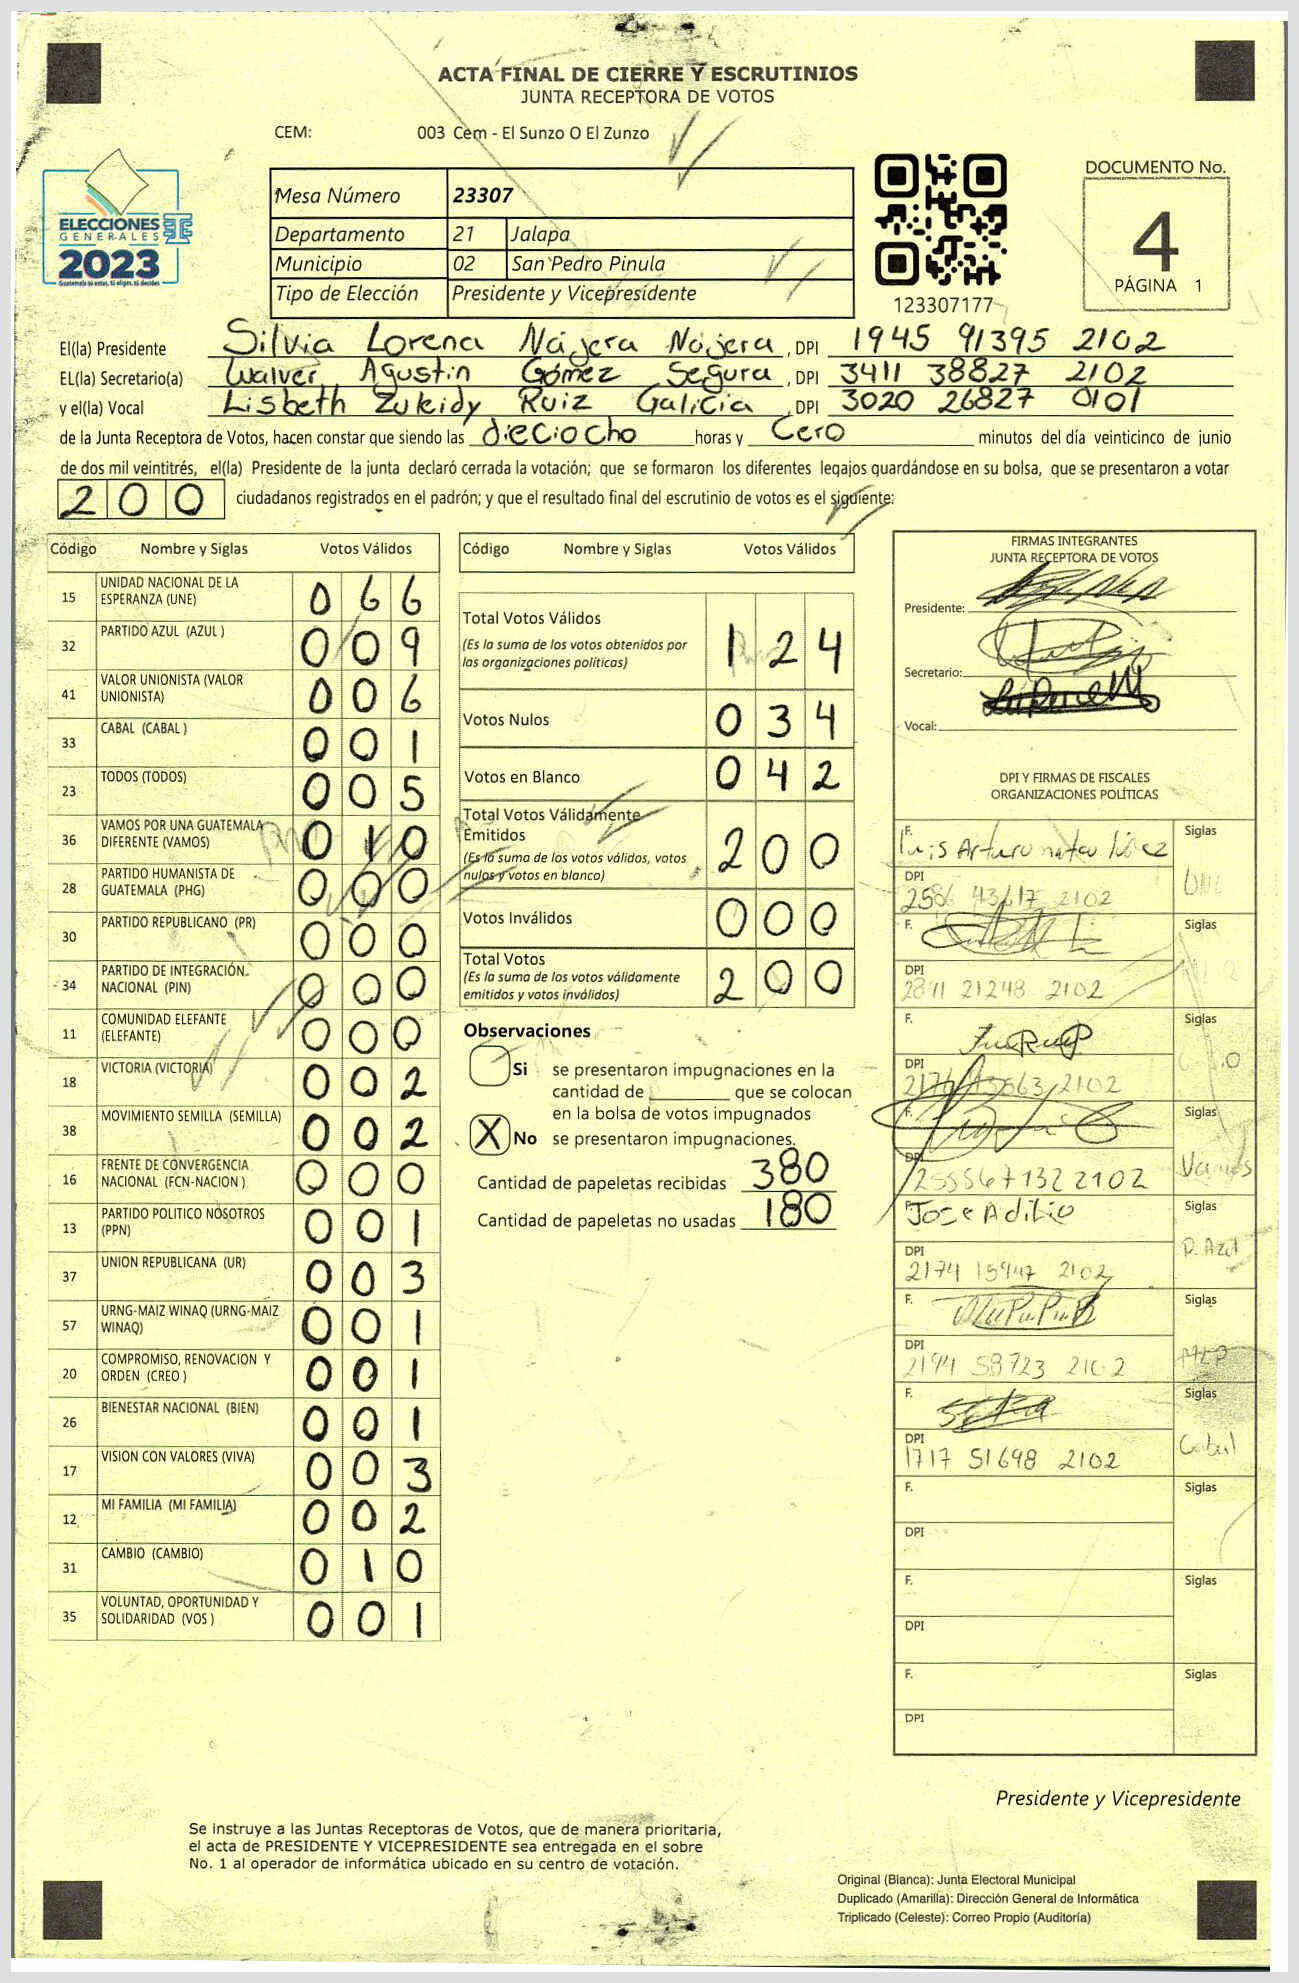 ACTA FINAL DE CIERRE Y ESCRUTINIOS
JUNTA RECEPTORA DE VOTOS
CEM: 003 Cem - El Sunzo O El Zunzo
ELECCIONES
GENERALES
2023
Guatemala tú votas, tú eliges, tú decides
Mesa Número 23307
Departamento 21 Jalapa
Municipio 02 San Pedro Pinula
Tipo de Elección Presidente y Vicepresidente
123307177
DOCUMENTO No.
4
PÁGINA 1
El(la) Presidente Silvia Lorena Nájera Nájera , DPI 1945 91395 2102
EL(la) Secretario(a) Walver Agustin Gómez Segura , DPI 3411 38827 2102
y el(la) Vocal Lisbeth Zuleidy Ruiz Galicia , DPI 3020 26827 0101
de la Junta Receptora de Votos, hacen constar que siendo las dieciocho horas y Cero minutos del día veinticinco de junio
de dos mil veintitrés, el(la) Presidente de la junta declaró cerrada la votación; que se formaron los diferentes legajos guardándose en su bolsa, que se presentaron a votar
200 ciudadanos registrados en el padrón; y que el resultado final del escrutinio de votos es el siguiente:
Código Nombre y Siglas Votos Válidos
15 UNIDAD NACIONAL DE LA ESPERANZA (UNE) 066
32 PARTIDO AZUL (AZUL ) 009
41 VALOR UNIONISTA (VALOR UNIONISTA) 006
33 CABAL (CABAL ) 001
23 TODOS (TODOS) 005
36 VAMOS POR UNA GUATEMALA DIFERENTE (VAMOS) 010
28 PARTIDO HUMANISTA DE GUATEMALA (PHG) 000
30 PARTIDO REPUBLICANO (PR) 000
34 PARTIDO DE INTEGRACIÓN NACIONAL (PIN) 000
11 COMUNIDAD ELEFANTE (ELEFANTE) 000
18 VICTORIA (VICTORIA) 002
38 MOVIMIENTO SEMILLA (SEMILLA) 002
16 FRENTE DE CONVERGENCIA NACIONAL (FCN-NACION ) 000
13 PARTIDO POLITICO NOSOTROS (PPN) 001
37 UNION REPUBLICANA (UR) 003
57 URNG-MAIZ WINAQ (URNG-MAIZ WINAQ) 001
20 COMPROMISO, RENOVACION Y ORDEN (CREO ) 001
26 BIENESTAR NACIONAL (BIEN) 001
17 VISION CON VALORES (VIVA) 003
12 MI FAMILIA (MI FAMILIA) 002
31 CAMBIO (CAMBIO) 010
35 VOLUNTAD, OPORTUNIDAD Y SOLIDARIDAD (VOS ) 001
Código Nombre y Siglas Votos Válidos
Total Votos Válidos 124
(Es la suma de los votos obtenidos por
las organizaciones políticas)
Votos Nulos 034
Votos en Blanco 042
Total Votos Válidamente
Emitidos 200
(Es la suma de los votos válidos, votos
nulos y votos en blanco)
Votos Inválidos 000
Total Votos 200
(Es la suma de los votos válidamente
emitidos y votos inválidos)
Observaciones
Si se presentaron impugnaciones en la
cantidad de ________ que se colocan
en la bolsa de votos impugnados
X No se presentaron impugnaciones.
Cantidad de papeletas recibidas 380
Cantidad de papeletas no usadas 180
FIRMAS INTEGRANTES
JUNTA RECEPTORA DE VOTOS
Presidente:
Secretario:
Vocal:
DPI Y FIRMAS DE FISCALES
ORGANIZACIONES POLÍTICAS
F. Siglas
Luis Arturo
DPI
2586 43617 2102
F. Siglas
DPI
21248 2102
F. Siglas
DPI
2102
F. Siglas
Vamos
DPI
2102
F. Siglas
Jose
P. Azul
DPI
2174 15947 2102
F. Siglas
MLP
DPI
2194 58723 2102
F. Siglas
Cabal
DPI
1717 51698 2102
F. Siglas
DPI
F. Siglas
DPI
F. Siglas
DPI
Presidente y Vicepresidente
Se instruye a las Juntas Receptoras de Votos, que de manera prioritaria,
el acta de PRESIDENTE Y VICEPRESIDENTE sea entregada en el sobre
No. 1 al operador de informática ubicado en su centro de votación.
Original (Blanca): Junta Electoral Municipal
Duplicado (Amarilla): Dirección General de Informática
Triplicado (Celeste): Correo Propio (Auditoría)